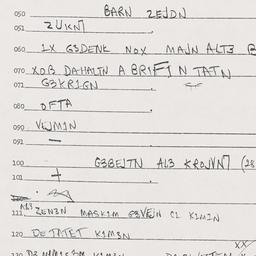 050 BARN ZEJDN
051 ZUKN7
060 1X G3DENK NOX MAJN ALT3 B
070 XOB DAHALTN A BRIFIN TATN
071 G3KRIGN
080 OFTA
090 VEJMIN
091 —
100 G3BEJTN AL3 KROJVN7 (28
101 +
A13
111 ZEN3N MASKIM G3VEJN C1 K1MIN
120 DE TATET K1M3N
XX